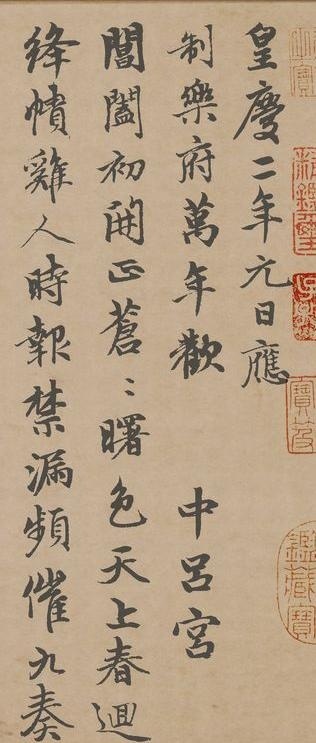 皇慶二年元日應
制樂府萬年歡 中呂宮
閶闔初開正蒼〻曙色天上春迴
絳幘雞人時報禁漏頻催九奏